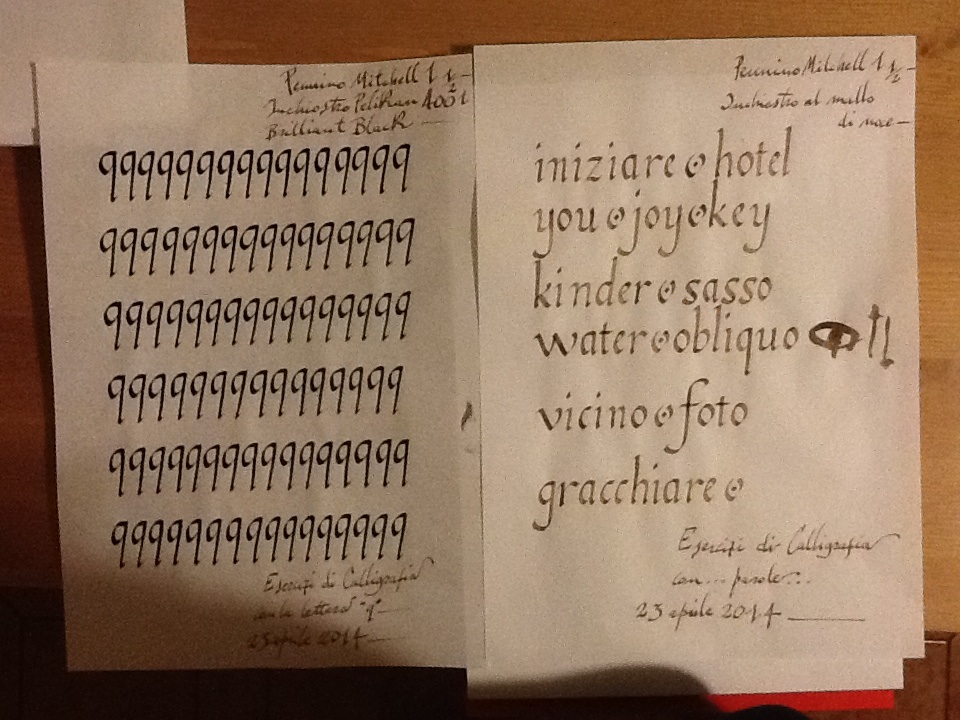 Pennino Mitchell 1 1/2
Inchiostro Pelikan 4001
Brilliant Black
qqqqqqqqqqqqqqqq
qqqqqqqqqqqqqqqq
qqqqqqqqqqqqqqq
qqqqqqqqqqqqqqq
qqqqqqqqqqqqqqq
qqqqqqqqqqqqqqqq
Esercizi di Calligrafia
con la lettera "q"
23 aprile 2014
Pennino Mitchell 1 1/2
Inchiostro al mallo
di noce
iniziare hotel
you joy key
kinder sasso
water obliquo
vicino foto
gracchiare
Esercizi di Calligrafia
con... parole...
23 aprile 2014